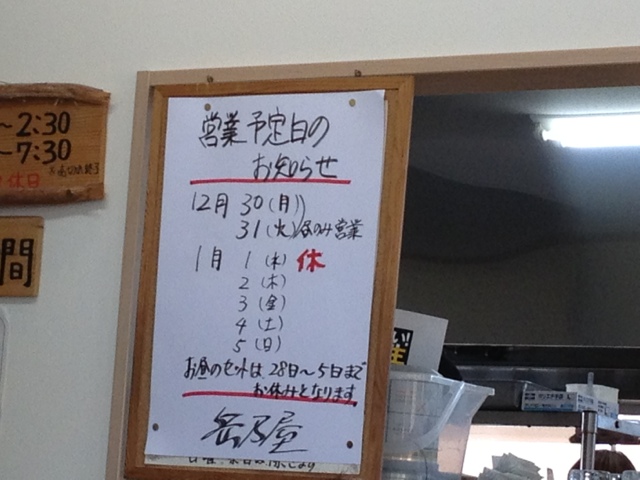 ～2:30
～7:30
※売切れ終了
休日
間
営業予定日の
お知らせ
12月 30(月)
31(火)昼のみ営業
1月 1(水) 休
2(木)
3(金)
4(土)
5(日)
お昼のセットは28日～5日まで
お休みとなります